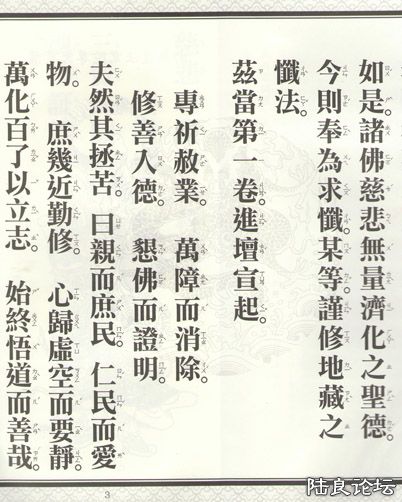 如是諸佛慈悲無量濟化之聖德。
今則奉為求懺某等謹修地藏之
懺法。
茲當第一卷進壇宣起
專祈赦業　萬障而消除。
修善入德　懇佛而證明。
夫然其拯苦　曰親而庶民　仁民而愛
物。　庶幾近勤修　心歸虛空而要靜。
萬化百了以立志　始終悟道而善哉。
3
陆良论坛